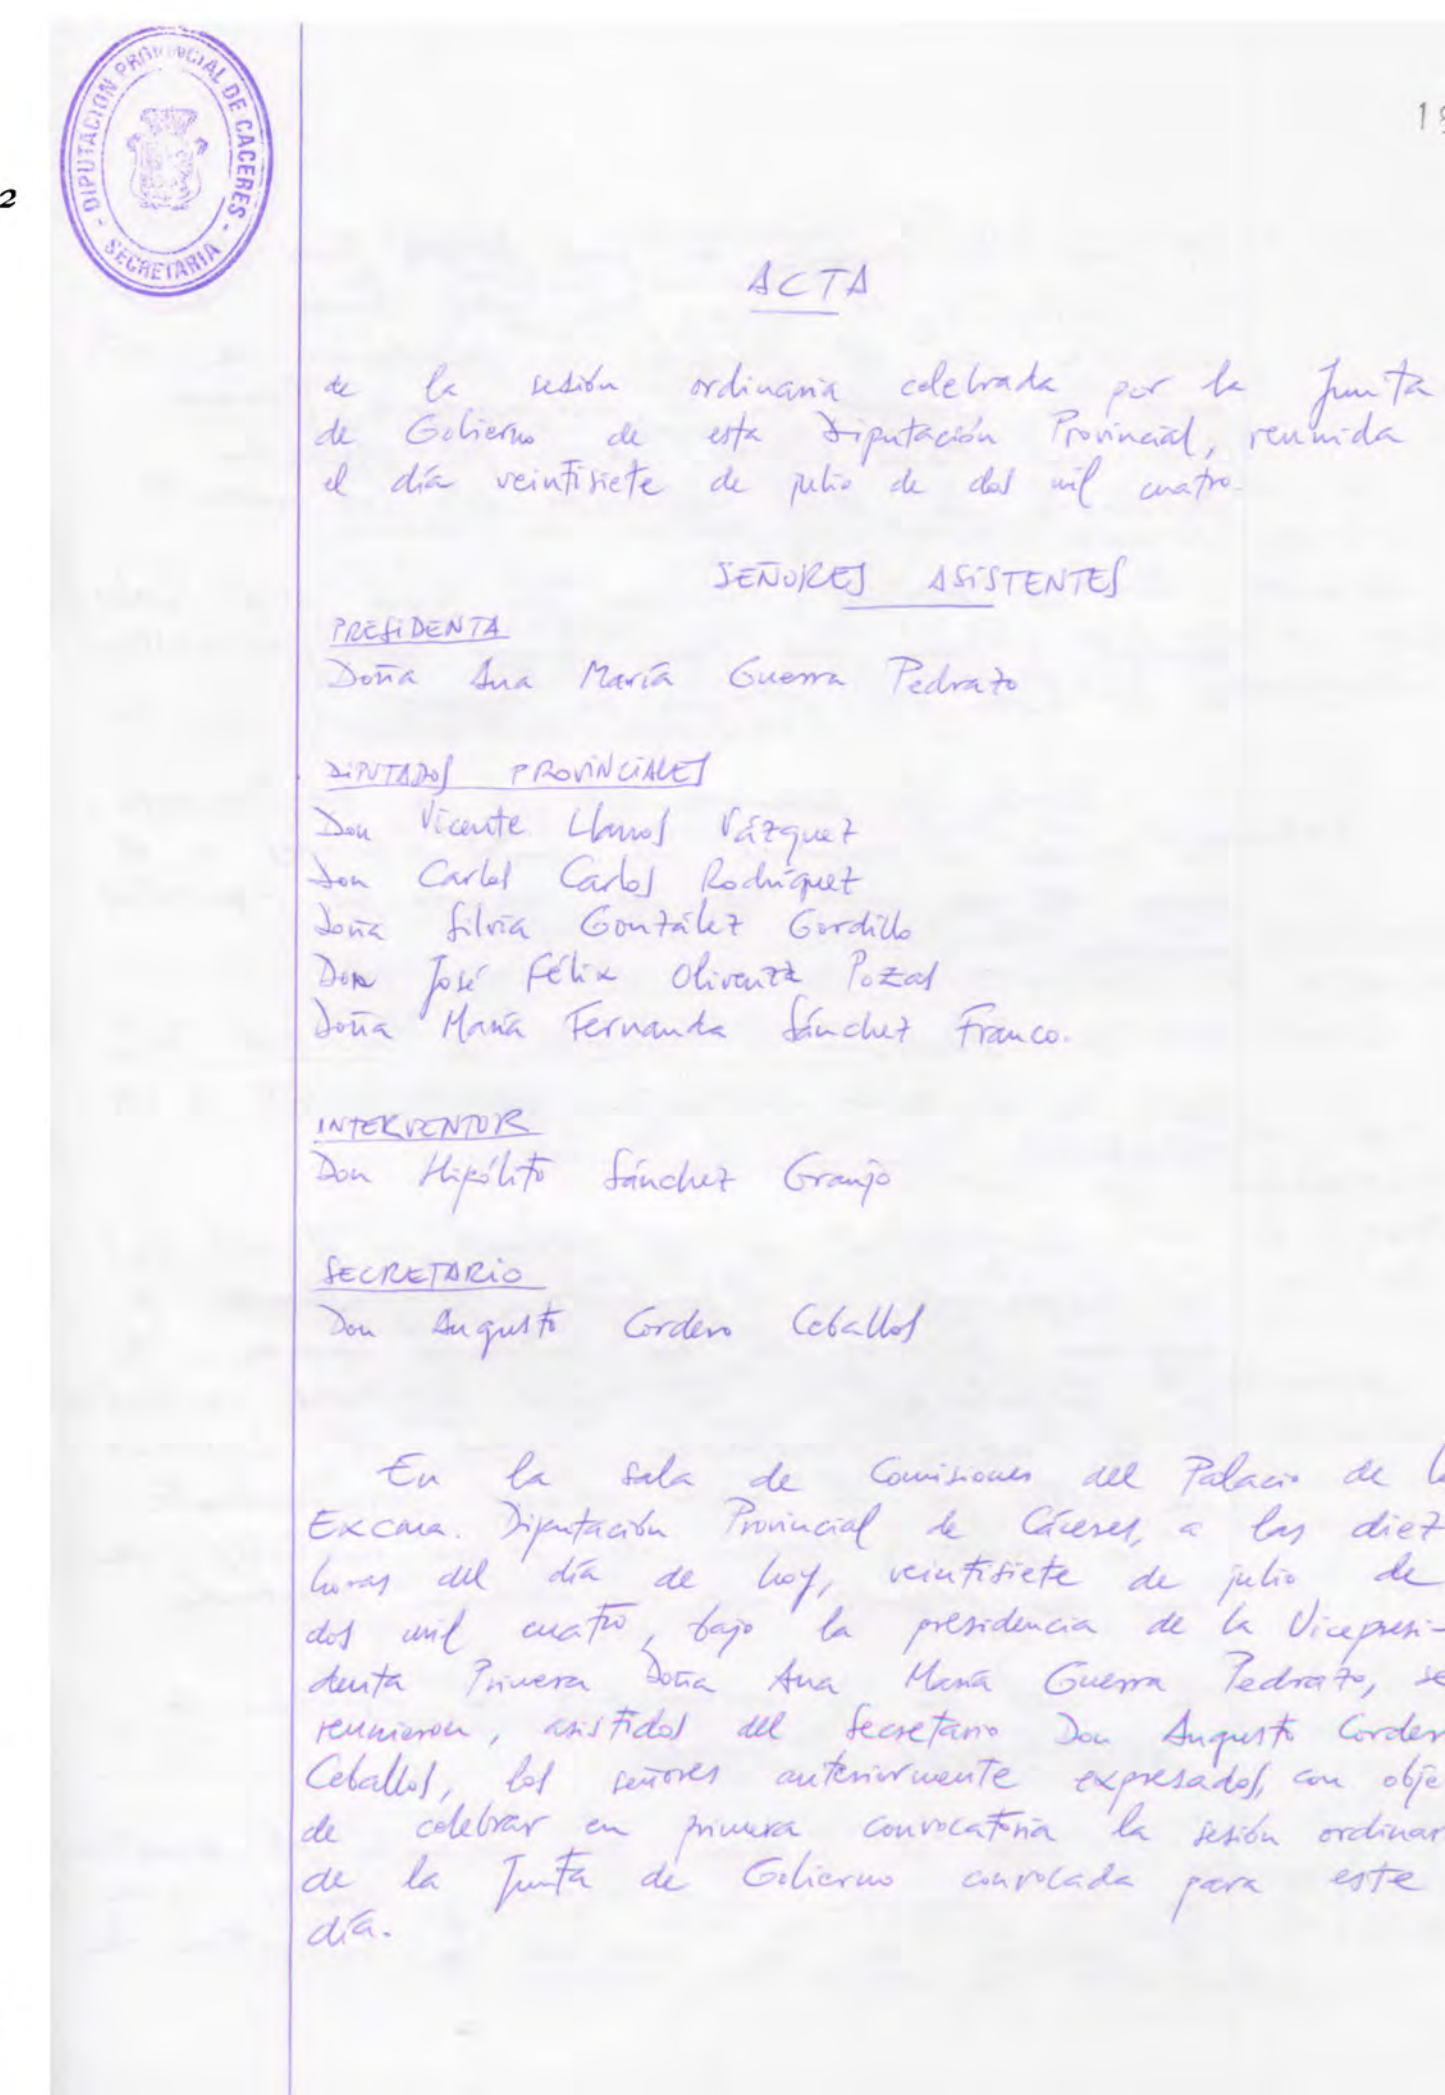 DIPUTACION PROVINCIAL DE CACERES
- SECRETARIA -
2
ACTA
de la sesión ordinaria celebrada por la Junta
de Gobierno de esta Diputación Provincial, reunida
el día veintisiete de julio de dos mil cuatro.
SEÑORES ASISTENTES
PRESIDENTA
Doña Ana María Guerra Pedrazo
DIPUTADOS PROVINCIALES
Don Vicente Llanos Vázquez
Don Carlos Carlos Rodríguez
Doña Silvia González Gordillo
Don José Félix Olivenza Pozas
Doña María Fernanda Sánchez Franco.
INTERVENTOR
Don Hipólito Sánchez Granjo
SECRETARIO
Don Augusto Cordero Ceballos
En la sala de Comisiones del Palacio de
Excma. Diputación Provincial de Cáceres, a las diez
horas del día de hoy, veintisiete de julio de
dos mil cuatro, bajo la presidencia de la Vicepresi-
denta Primera Doña Ana María Guerra Pedrazo, se
reunieron, asistidos del Secretario Don Augusto Corder
Ceballos, los señores anteriormente expresados, con obje
de celebrar en primera convocatoria la sesión ordinar
de la Junta de Gobierno convocada para este
día.